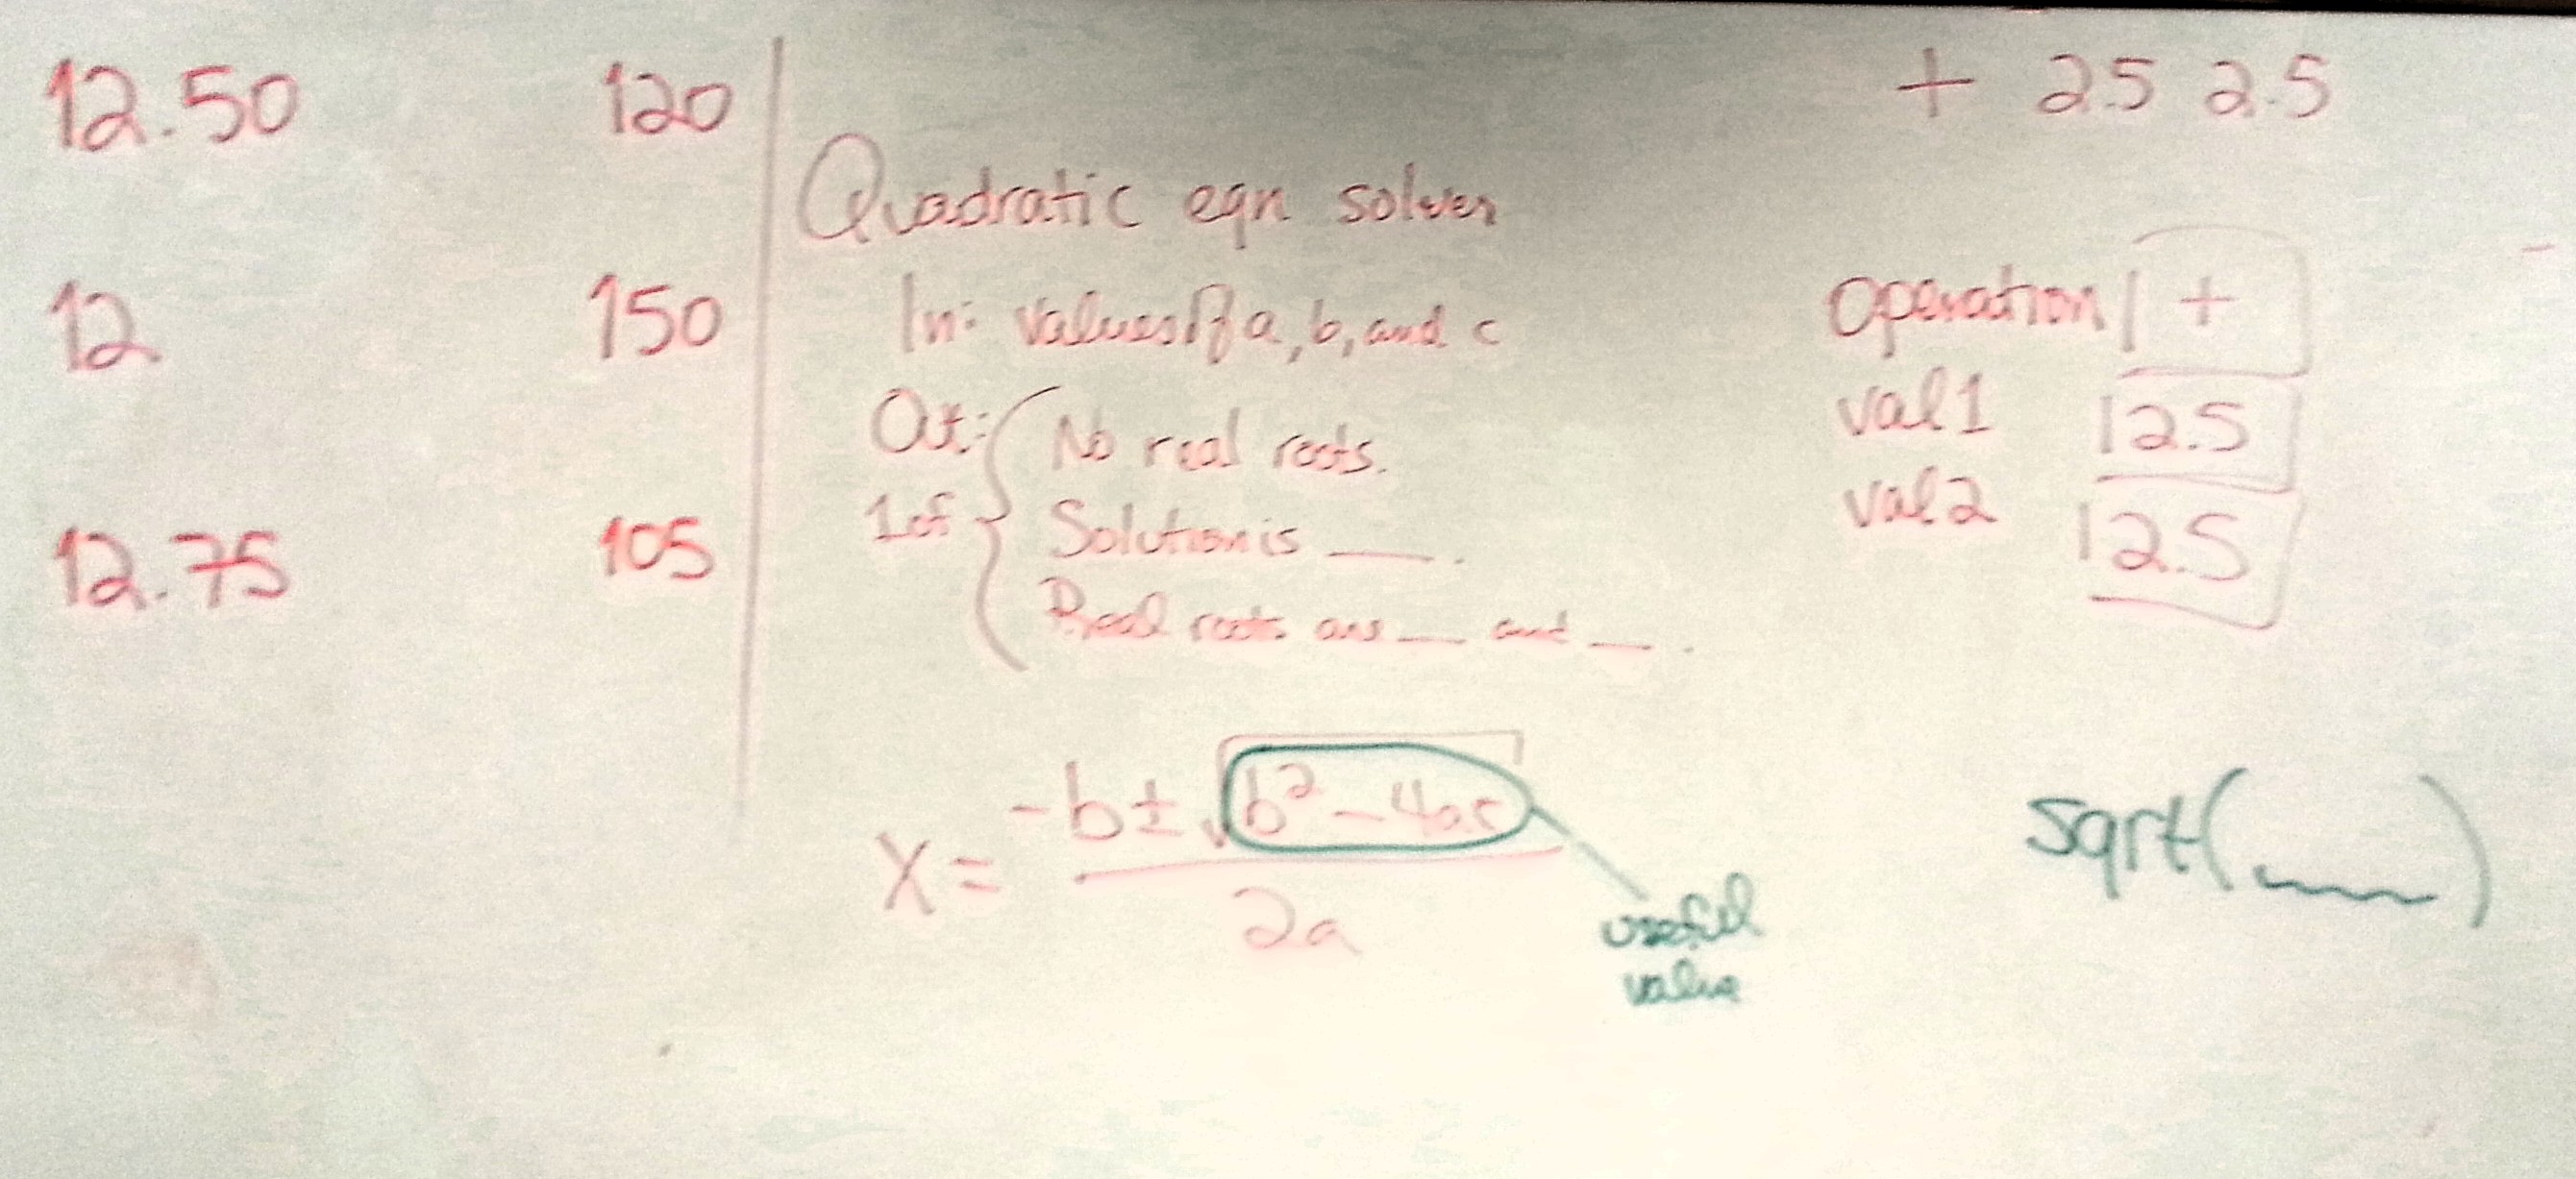 12.50 120
12 150
12.75 105
Quadratic eqn solver
In: Values of a, b, and c
Out:
1 of
No real roots.
Solution is ___.
Real roots are ___ and ___.
x = -b ± √b² - 4ac
2a
useful
value
+ 2.5 2.5
operation +
val1 2.5
val2 2.5
sqrt(___)